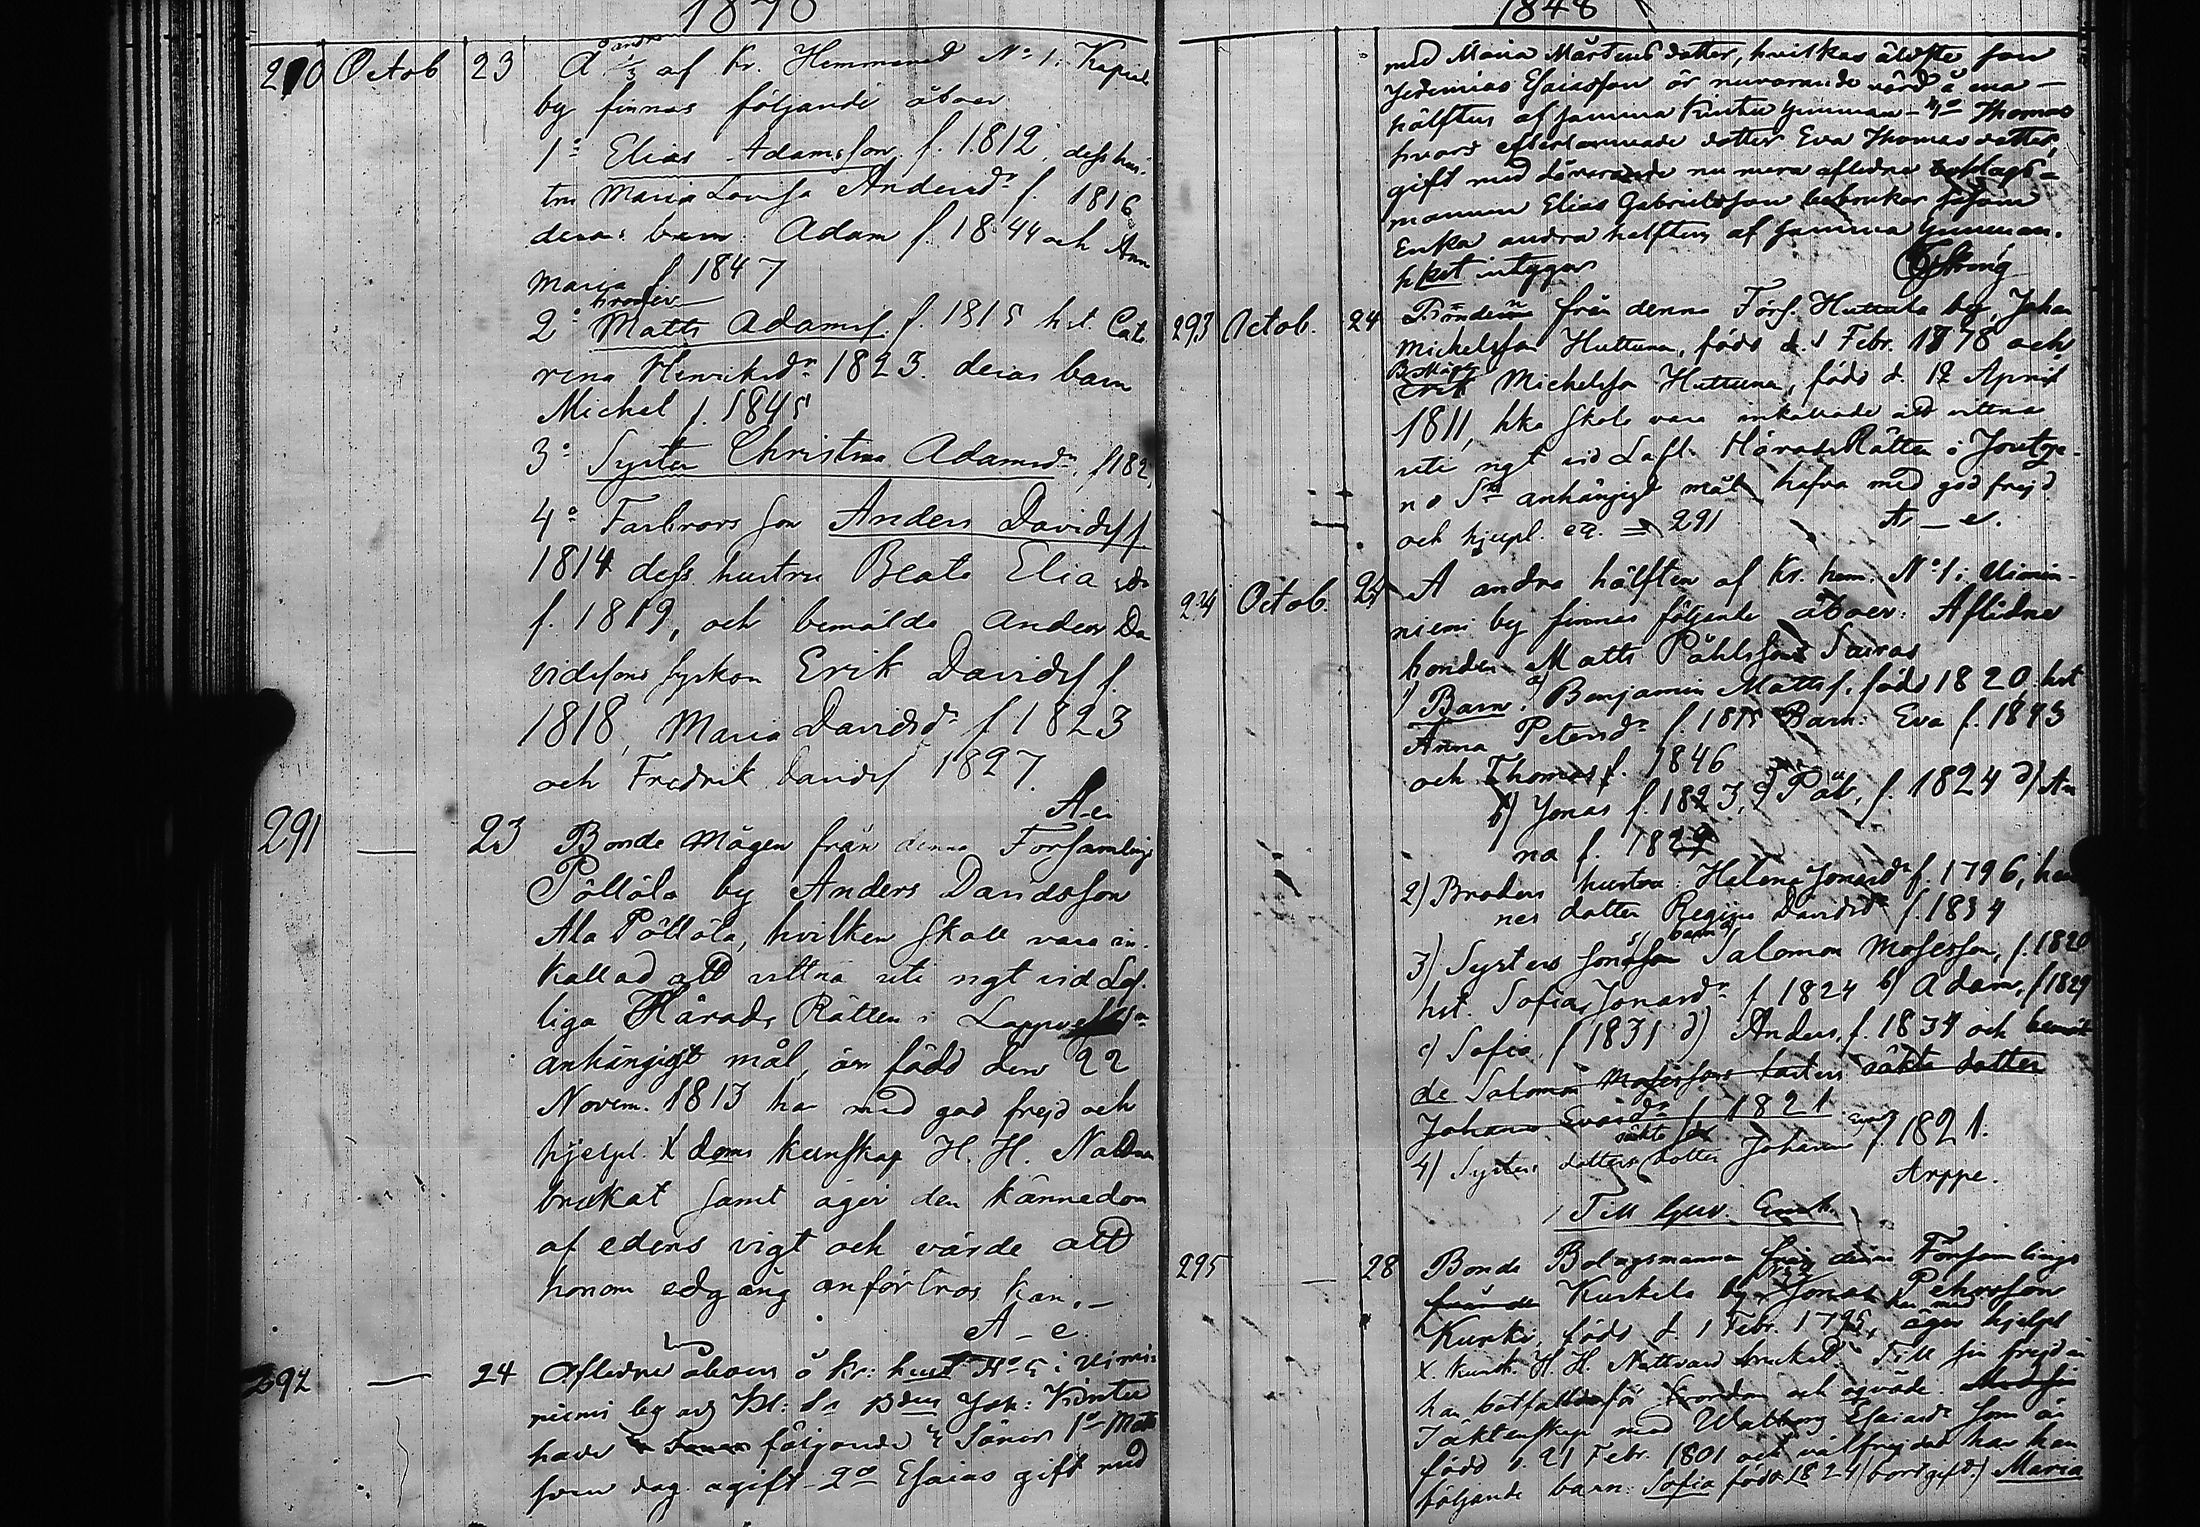 1848
290 Octob 23 Å andra 1/3 af Kr. Hemmanet No 1 Kapiala
by finnas följande åboer
1o Elias Adamsson f. 1812, dess hus-
tru Maria Lovisa Andersdr f. 1816
deras barn Adam f. 1844 och Ann
Maria f 1847
2o broder Matts Adamsf. f. 1815 hst. Cata
rina Henriksdr 1823. deras barn
Michel f. 1845
3o Syster Christina Adamsdr, f 182
4o Farbrors son Anders Davidsf f
1814 dess hustru Beata Eliasdr
f. 1819, och bemälde Anders Da
vidsons syskon Erik Davidsf f.
1818, Maria Davidsdr f 1823
och Fredrik Davidsf 1827.
A.e.
291 — 23 Bonde Mågen från denna Församlings
Pöllölä by Anders Davidsson
Ala Pöllölä, hvilken skall vara in-
kallad att vittna uti ngt vid Lof-
liga Härads Rätten i Lappvesi Sn
anhängigt mål, är född den 22
Novem. 1813 har med god frejd och
hjelpl. X doms kunskap H. H. Nattvn
brukat samt äger den kännedom
af edens vigt och värde att
honom edgång anförtros kan. —
A – e
292 — 24 Afledne åboen å Kr: No 5 i Uimi-
niemi by
hade följande 4 Söner 1o Matts
som dog ogift – 2o Esaias gift med
1848
med Maria Mårtensdotter, hvilkas äldste son
Jeremias Esaiasson är nuvarande värd å ena —
hälften af samma hemman – 4o Thomas
hvars efterlemnade dotter Eva Thomasdotter,
gift med dervarande nu mera afledne bolags-
mannen Elias Gabrielsson bebrukar såsom
Enka andra hälften af samma hemman.
hket intygar
293 Octob. 24 Bönderne från denna Förs. Huttula by, Johan
Michelsson Huttunen, född d 1 Febr. 1778 och
B. Mågen Erik Michelsson Huttunen, född d. 12 April
1811, hka skola vara inkallade att vittna
uti ngt vid Lofl. Härads Rätten i Joutse-
no Sn anhängigt mål, hafva med god frejd
och hjelpl. = 291 A – e.
294 Octob. 24 Å andra hälften af Kr. hem. No 1 i Uimin-
niemi by finnas följande åboer: Afledne
bonden Matts Påhlsson
1) Barn: a) Benjamin Mattsf. född 1820. hst
Anna Petersdr f. 1815 Barn: Eva f. 1843
och Thomas f. 1846
b) Jonas f. 1823, c) Påv. f. 1824 d) An
na f. 1829
2) Broders hustru: Helena Jonasdr f. 1796, hen
nes dotter Regina Davidsdr f 1834
3) Systers barn a) Salomon Mosesson, f. 1820
hst. Sofia Jonasdr f 1824 b) Adam, f 1829
c) Sofia f 1831 d) Anders, f. 1834 och bemäl
de Salomon Mosessons fasters oäkta dotter
Johana Evasdr f 1821
4) Systers dotters oäkta dotter Johanna f 1821.
Arppe.
295 — 28 Bonde Bolagsmannen från denna Församlings
Kurkela by Jonas Pehrsson
Kurki, född d. 1 Febr. 1795, har med äger hjelpl
X. kunsk. H. H. Nattvard brukat. Till sin frejd
har
I äktenskap med Walborg Esaiasdr som är
född d. 21 Febr. 1801 och välfrejdad har han
följande barn: Sofia född 1824 (bortgift) Maria